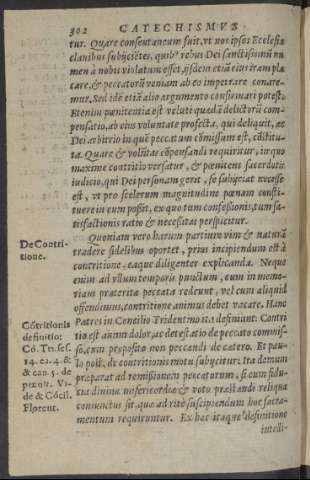 302 CATECHISMVS
tur. Quare consentaneum fuit, vt nos ipsos Ecclesiæ
clauibus subijciẽtes, quib⁹ rebus Dei sanctissimũ nu
men à nobis violatum esset, ijsdem etiã eius iram pla
care, & peccatorũ veniam ab eo impetrare conare-
mur. Sed idẽ etiã alio argumento confirmari potest.
Etenim pœnitentia est veluti quædã delictorũ com-
pensatio, ab eius voluntate profecta, qui deliquit, ac
Dei arbitrio in quẽ peccatum cõmissum est, cõstitu-
ta. Quare & volũtas cõpensandi requiritur, in quo
maxime contritio versatur, & pœnitens sacerdotis
iudicio, qui Dei personam gerat, se subijciat necesse
est, vt pro scelerum magnitudine pœnam consti-
tuere in eum possit, ex quo tum confessionis, tum sa-
tisfactionis ratio & necessitas perspicitur.
De Contri-
tione.
Quoniam vero harum partium vim & naturã
tradere fidelibus oportet, prius incipiendum est à
contritione, eaque diligenter explicanda. Neque
enim ad vllum temporis punctum, cum in memo-
riam præterita peccata redeunt, vel cum aliquid
offendimus, contritione animus debet vacare. Hanc
Cõtritionis
definitio:
Cõ. Tri. ses.
14. ca. 4. &
& can. 5. de
pœnit. Vi-
de & Cõcil.
Florent.
Patres in Concilio Tridentino ita definiunt: Contri
tio est animi dolor, ac detestatio de peccato commis-
so, cum proposito non peccandi de cætero. Et pau-
lo post, de contritionis motu subijcitur: Ita demum
præparat ad remissionem peccatorum, si cum fidu-
cia diuinæ misericordiæ & voto præstandi reliqua
coniunctus sit, quæ ad rite suscipiendum hoc sacra-
mentum requiruntur. Ex hac itaque definitione
intelli-